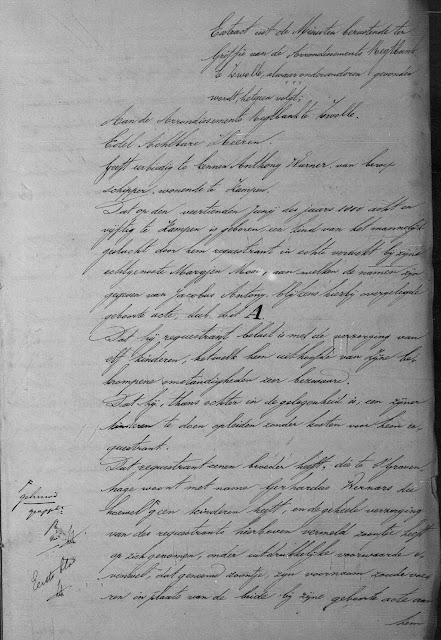 Extract uit de Minuten berustende ter
Griffie van de Arrondissements Regtbank
te Zwolle, alwaar onder anderen gevonden
werdt, hetgeen volgt;
Aan de Arrondissements Regtbank te Zwolle.
Edel Achtbare Heeren!
Geeft eerbiedig te kennen Anthony Warner, van beroep
schipper, wonende te Kampen,
Dat op den veertienden Junij des jaars 1800 acht en
vijftig te Kampen is geboren een kind van het mannelijk
geslacht door hem requestrant in echt verwekt bij zijne
echtgenoote Margjen Mooi, aan welken de namen zijn
gegeven van Jacobus Antony, blijkens hierbij overgelegde
geboorte acte, sub. Lit. A.
Dat hij requestrant belast is met de verzorging van
elf kinderen, hetwelk hem uit hoofde van zijne be-
krompene omstandigheden zeer bezwaart.
Dat hij, thans echter in de gelegenheid is, een zijner
kinderen te doen opleiden zonder kosten van hem re-
questrant.
Dat requestrant eenen broeder heeft, die te 'sGraven-
hage woont met name Gerhardus Wernars die
hoewel geen kinderen heeft, en de geheele verzorging
van des requestrants hierboven vermeld zoontje heeft
op zich genomen, onder uitdrukkelijke voorwaarde e-
venwel, dat genoemd zoontje, zijn voornaam zoude voe-
ren in plaats van de beide bij zijne geboorte acte aan
hem